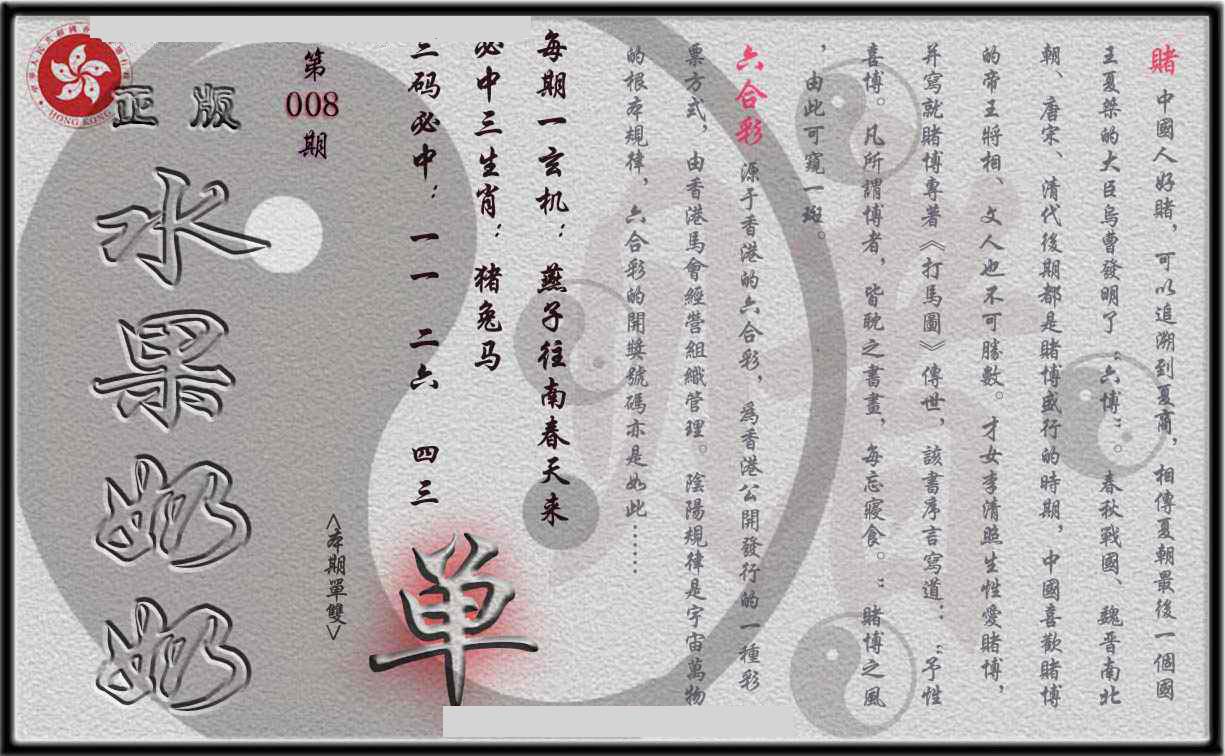 賭 中國人好賭，可以追溯到夏商，相傳夏朝最後一個國
王夏桀的大臣烏曹發明了“六博”。春秋戰國、魏晋南北
朝、唐宋、清代後期都是賭博盛行的時期，中國喜歡賭博
的帝王將相、文人也不可勝數。才女李清照生性愛賭博，
并寫就賭博專著《打馬圖》傳世，該書序言寫道：“予性
喜博。凡所謂博者，皆耽之書畫，每忘寢食。”賭博之風
，由此可窺一斑。
六合彩 源于香港的六合彩，為香港公開發行的一種彩
票方式，由香港馬會經營組織管理。陰陽規律是宇宙萬物
的根本規律，六合彩的開獎號碼亦是如此……
每期一玄机：燕子往南春天来
必中三生肖：猪兔马
三码必中：一一 二六 四三
单
<本期單雙>
第
008
期
正版
水果奶奶
HONG KONG